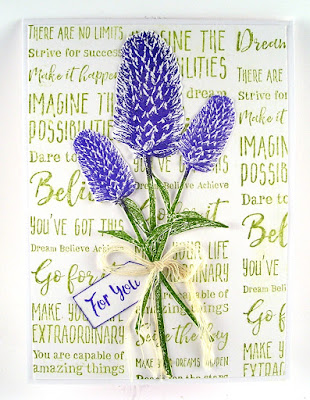 THERE ARE NO LIMITS
Strive for success
Make it happen
IMAGINE THE
POSSIBILITIES
Dare to
Believe
YOU'VE GOT THIS
Dream Believe Achieve
Go for it
MAKE YOUR
EXTRAORDINARY
You are capable of
amazing things
IMAGINE THE
dream
Believe Achieve
YOUR LIFE
EXTRAORDINARY
capable of
things
Seize the day
MAKE DREAMS HAPPEN
Reach for the stars
Dream
THERE ARE
Strive for
Make it
IMAGINE
POSSIBI
Dare to
Beli
YOU'VE G
Dream Believe
Go for
MAKE YO
EXTRAOR
You are cap
amazing
For You